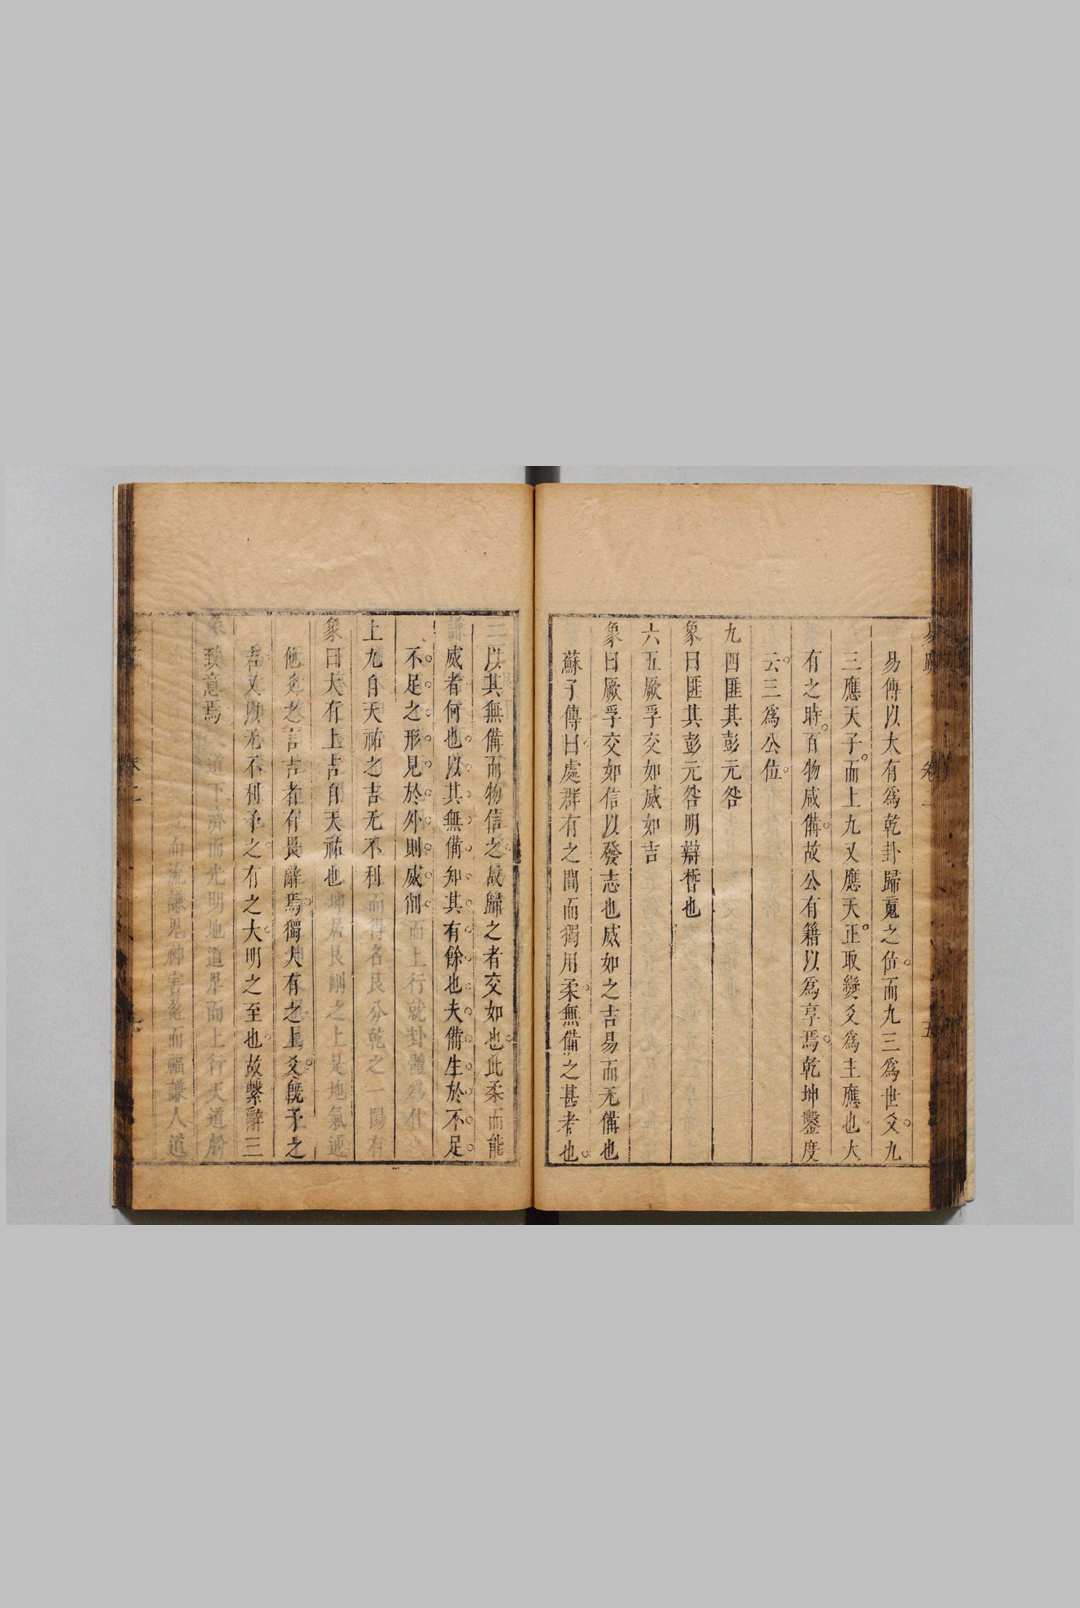 易傳以大有爲乾卦歸䰟之位而九三爲世爻九
三應天子而上九乂應天正取變爻爲主應也大
有之時百物咸備故公有籍以爲享焉乾坤鑿度
云三爲公位
九四匪其彭元咎
象曰匪其彭元咎明辯晢也
六五厥孚交如威如吉
象曰厥孚交如信以發志也威如之吉易而无備也
蘇子傳曰處群有之間而獨用柔無備之甚者也
以其無備而物信之故歸之者交如也此柔而能
威者何也以其無備知其有餘也夫備生於不足
不足之形見於外則威削
上九自天祐之吉无不利
象曰大有上吉自天祐也
他爻之言吉者有畏辭焉獨大有之上爻旣予之
吉又以无不利予之有之大明之至也故繫辭三
致意焉